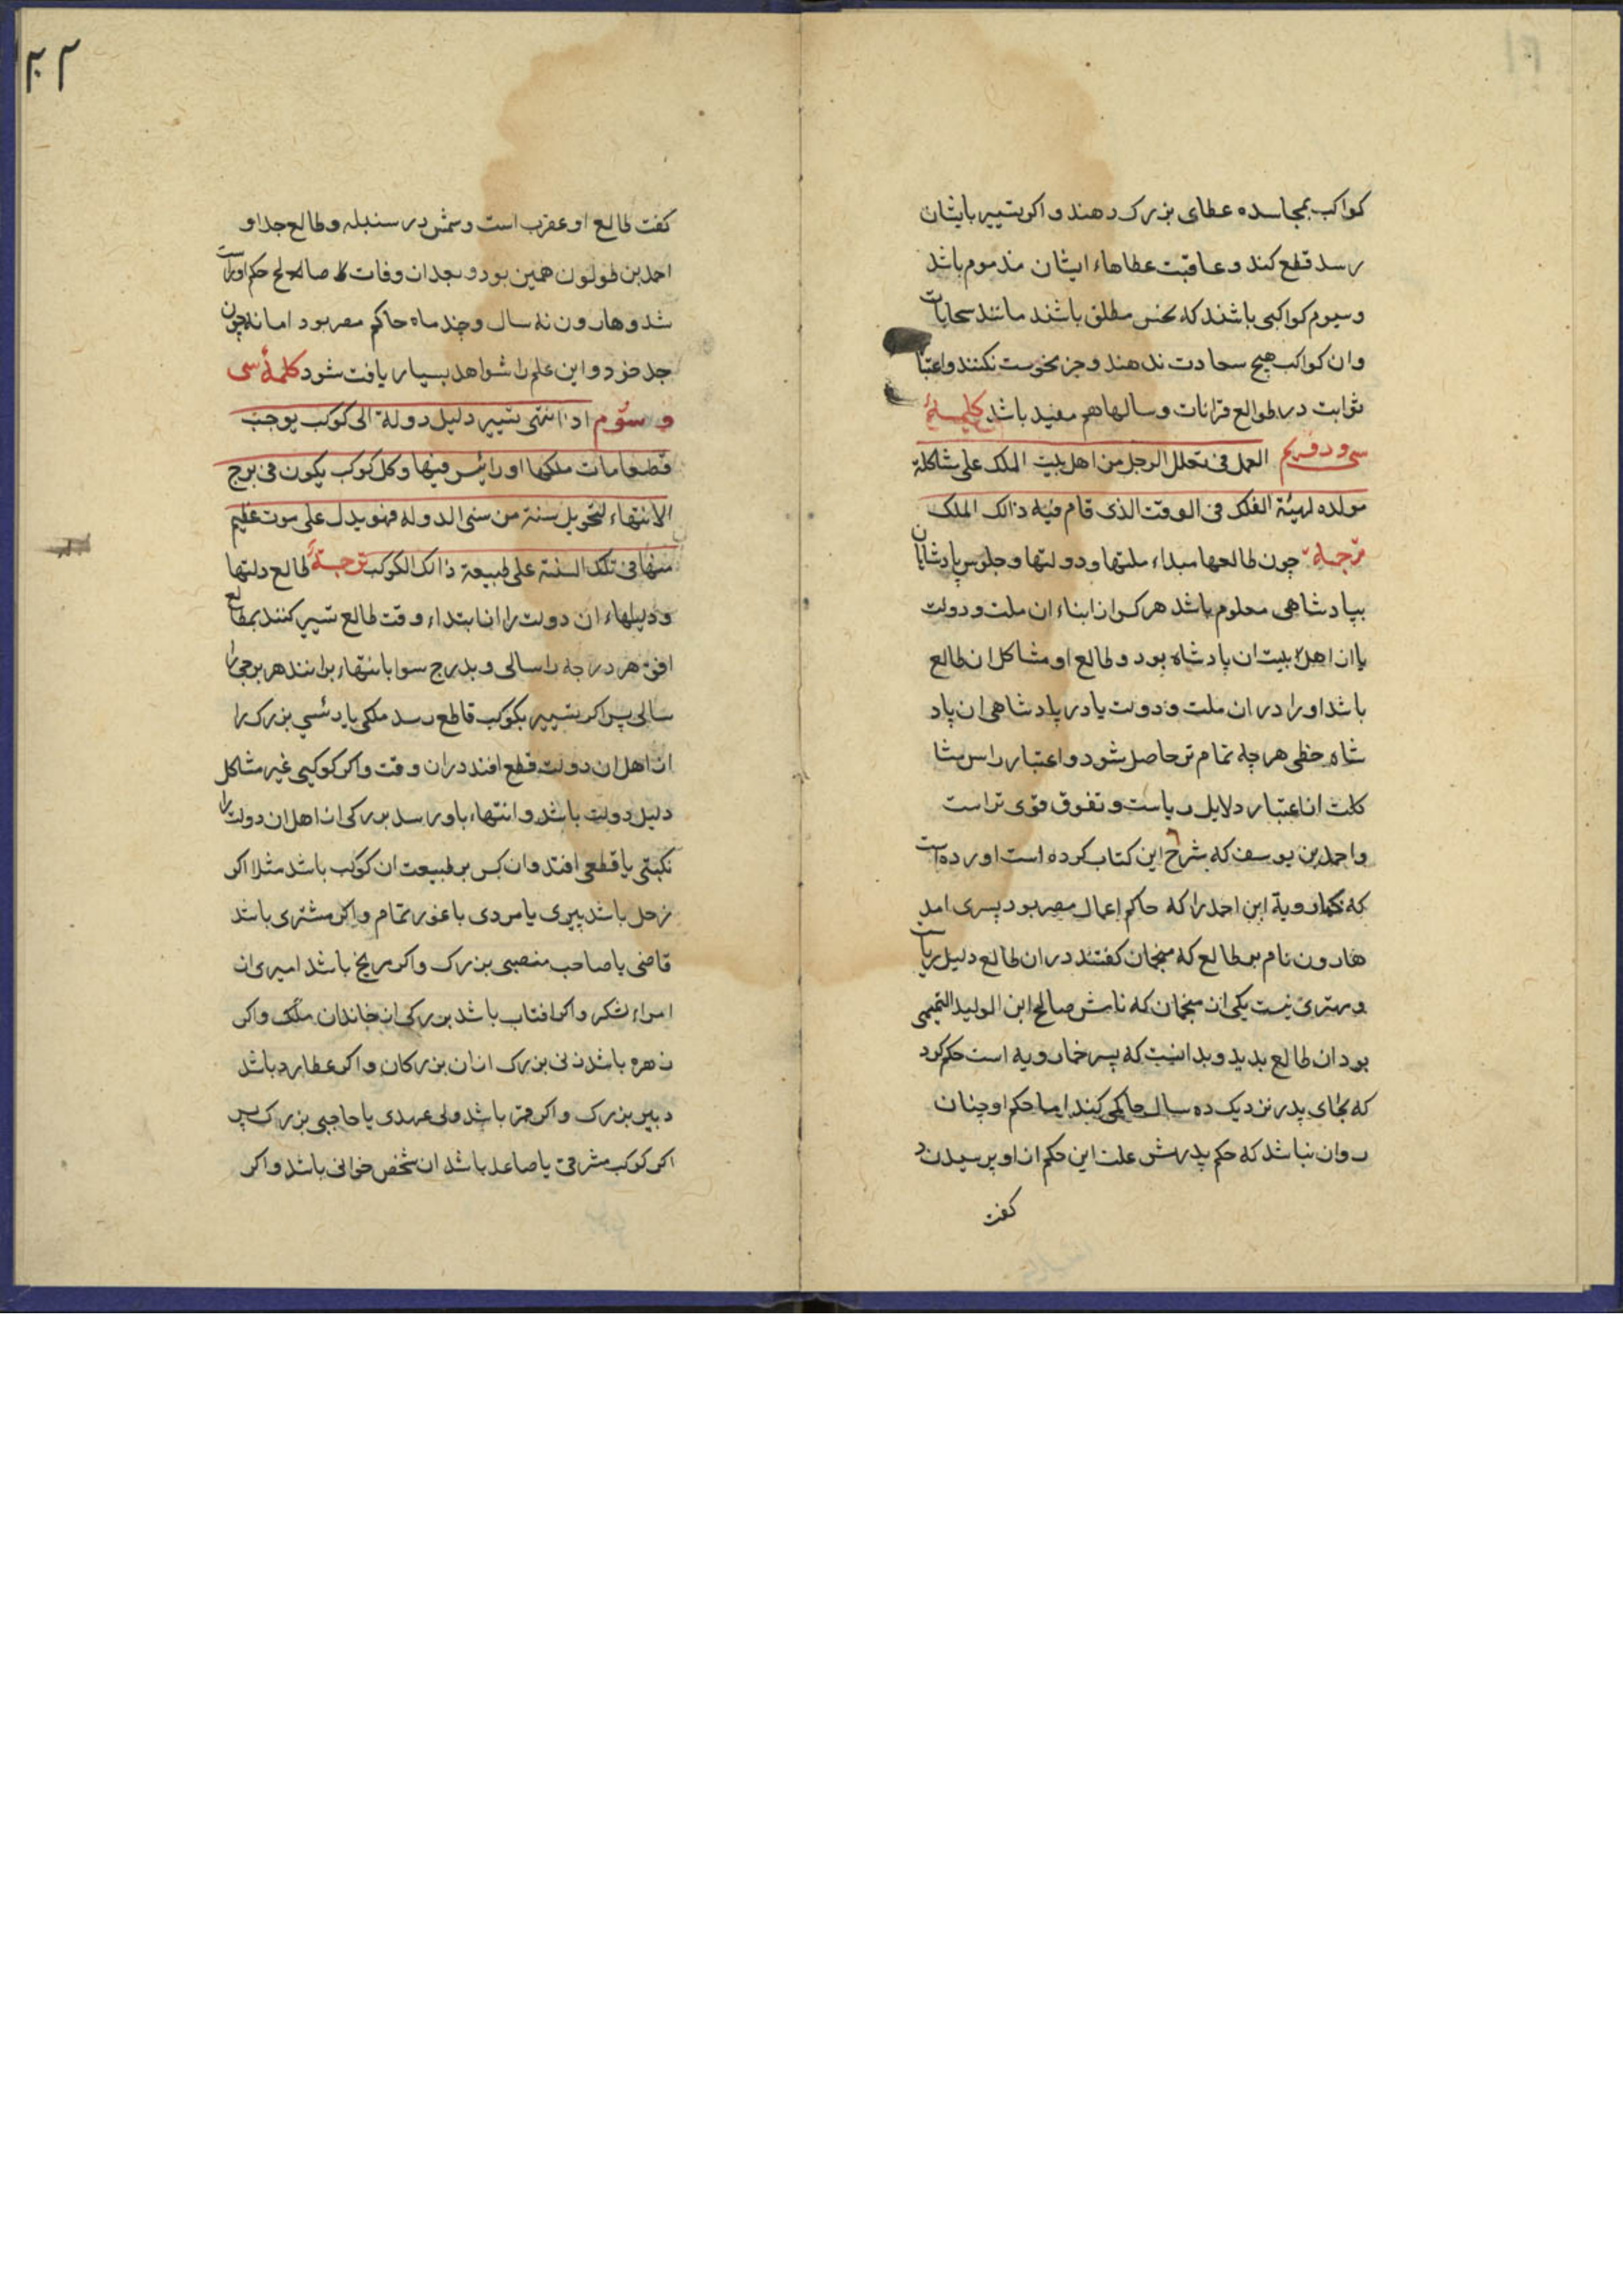 کواکب بمجاسده عطای بزرک دهند و اکر بتسییر بایشان
رسد قطع کند و عاقبت عطاهاء ایشان مذموم باشد
و سیوم کواکبی باشند که نحس مطلق باشند مانند سحابیات
وان کواکب هیچ سعادت ندهند و جز نحوست نکنند و اعتبا
ثوابت در طوالع قرانات و سالها هم مفید باشد کلمهٔ
سی و دویم العمل فی تحلل الرجل من اهل بیت الملک علی شاکلة
مولده لهیئة الفلک فی الوقت الذی قام فیه ذالک الملک
ترجمه چون طالعها مبداء ملتها و دولتها و جلوس پادشاهان
بپادشاهی معلوم باشد هرکس از ابناء ان ملت و دولت
یا از اهل بیت ان پادشاه بود و طالع او مشاکل ان طالع
باشد او را در ان ملت و دولت یا در پادشاهی ان پاد
شاه حظی هرچه تمام تر حاصل شود و اعتبار راس مشا
کلت از اعتبار دلایل ریاست و تفوق قوی تر است
و احمد بن یوسف که شرح این کتاب کرده است اورده است
که خمارویة ابن احمد را که حاکم اعمال مصر بود پسری امد
هارون نام بر طالع که منجمان کفتند دران طالع دلیل ریاست
و مهتری نیست یکی از منجمان که نامش صالح ابن الولید التمیمی
بود ان طالع بدید و بدانست که پسر خمارویه است حکم کرد
که بجای پدر نزدیک ده سال حاکمی کند اما حکم او چنان
روان نباشد که حکم پدرش علت این حکم از او پرسیدند
کفت
۲۰۲
کفت طالع او عقرب است و شمس در سنبله و طالع جد او
احمد بن طولون همین بود و بعد از وفات صالح حکم او راست
شد و هارون نه سال و چند ماه حاکم مصر بود اما نه چون
جد خود و این علم را شواهد بسیار یافت شود کلمهٔ سی
و سوم اذا انتهی تسییر دلیل دولة الی کوکب یوجب
قطعا مات ملکها او رائیس فیها و کل کوکب یکون فی برج
الانتهاء لتحویل سنة من سنی الدوله فهو یدل علی موت عظیم
منها فی تلک السنة علی طبیعة ذالک الکوکب ترجمهٔ طالع دلتها
و دلیلهاء ان دولت را از ابتداء وقت طالع تسییر کنند بمطالع
افق هر درجه را سالی و بدرج سوا بانتهاء برانند هر برجی را
سالی پس اکر بتسییر بکوکب قاطع رسد ملکی یا رئیسی بزرک را
از اهل ان دولت قطع افتد دران وقت و اکر کوکبی غیر مشاکل
دلیل دولت باشد و انتهاء باو رسد بزرکی از اهل ان دولت را
نکبتی یا قطعی افتد و ان کس بر طبیعت ان کوکب باشد مثلا اکر
زحل باشد پیری یا مردی با غور تمام و اکر مشتری باشد
قاضی یا صاحب منصبی بزرک و اکر مریخ باشد امیری از
امراء لشکر و اکر افتاب باشد بزرکی از خاندان ملک و اکر
زهره باشد زنی بزرک از ان بزرکان و اکر عطارد باشد
دبیر بزرک و اکر قمر باشد ولی عهدی یا حاجبی بزرک پس
اکر کوکب مشرقی یا صاعد باشد ان شخص جوانی باشد و اکر